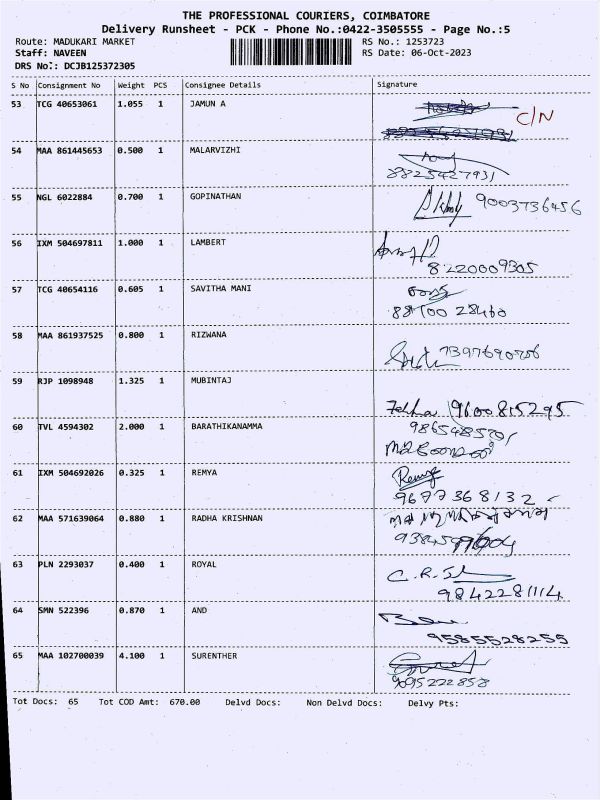 THE PROFESSIONAL COURIERS, COIMBATORE
Delivery Runsheet - PCK - Phone No.:0422-3505555 - Page No.:5
Route: MADUKARI MARKET RS No.: 1253723
Staff: NAVEEN RS Date: 06-Oct-2023
DRS No.: DCJB125372305
S No Consignment No Weight PCS Consignee Details Signature
53 TCG 40653061 1.055 1 JAMUN A C/N
54 MAA 861445653 0.500 1 MALARVIZHI
8825427931
55 NGL 6022884 0.700 1 GOPINATHAN 9003736456
56 IXM 504697811 1.000 1 LAMBERT
8220009305
57 TCG 40654116 0.605 1 SAVITHA MANI
88700 28460
58 MAA 861937525 0.800 1 RIZWANA
7397690756
59 RJP 1098948 1.325 1 MUBINTAJ
9600815295
60 TVL 4594302 2.000 1 BARATHIKANAMMA
61 IXM 504692026 0.325 1 REMYA Remya
9677368132
62 MAA 571639064 0.880 1 RADHA KRISHNAN
63 PLN 2293037 0.400 1 ROYAL
9842281114
64 SMN 522396 0.870 1 AND
9585528255
65 MAA 102700039 4.100 1 SURENTHER
9095222858
Tot Docs: 65 Tot COD Amt: 670.00 Delvd Docs: Non Delvd Docs: Delvy Pts: